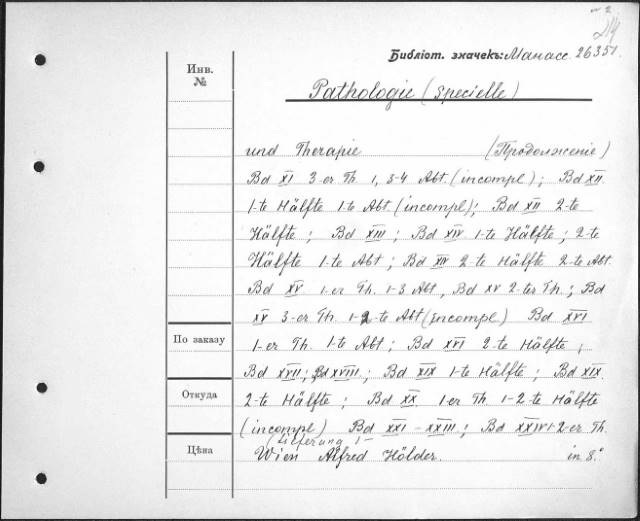 № 2
214
Библіот. значекъ: Манасс. 26351.
Инв. №
Pathologie (specielle)
und Therapie (Продолженіе)
Bd XI 3-er Th. 1, 3-4 Abt. (incompl); Bd XII.
1-te Hälfte 1-te Abt. (incompl); Bd XII 2-te
Hälfte; Bd XIII; Bd XIV 1-te Hälfte; 2-te
Hälfte 1-te Abt; Bd XIV 2-te Hälfte 2-te Abt.
Bd XV 1-er Th. 1-3 Abt, Bd XV 2-ter Th.; Bd
XV 3-er Th. 1-2-te Abt (incompl) Bd XVI
По заказу
1-er Th. 1-te Abt; Bd XVI 2-te Hälfte;
Bd XVII; Bd XVIII; Bd XIX 1-te Hälfte; Bd XIX.
Откуда
2-te Hälfte; Bd XX. 1-er Th 1-2-te Hälfte
(incompl) Bd XXI-XXIII; Bd XXIV 1-2-er Th.
(Lieferung 1-
Цѣна
Wien Alfred Hölder. in 8.°